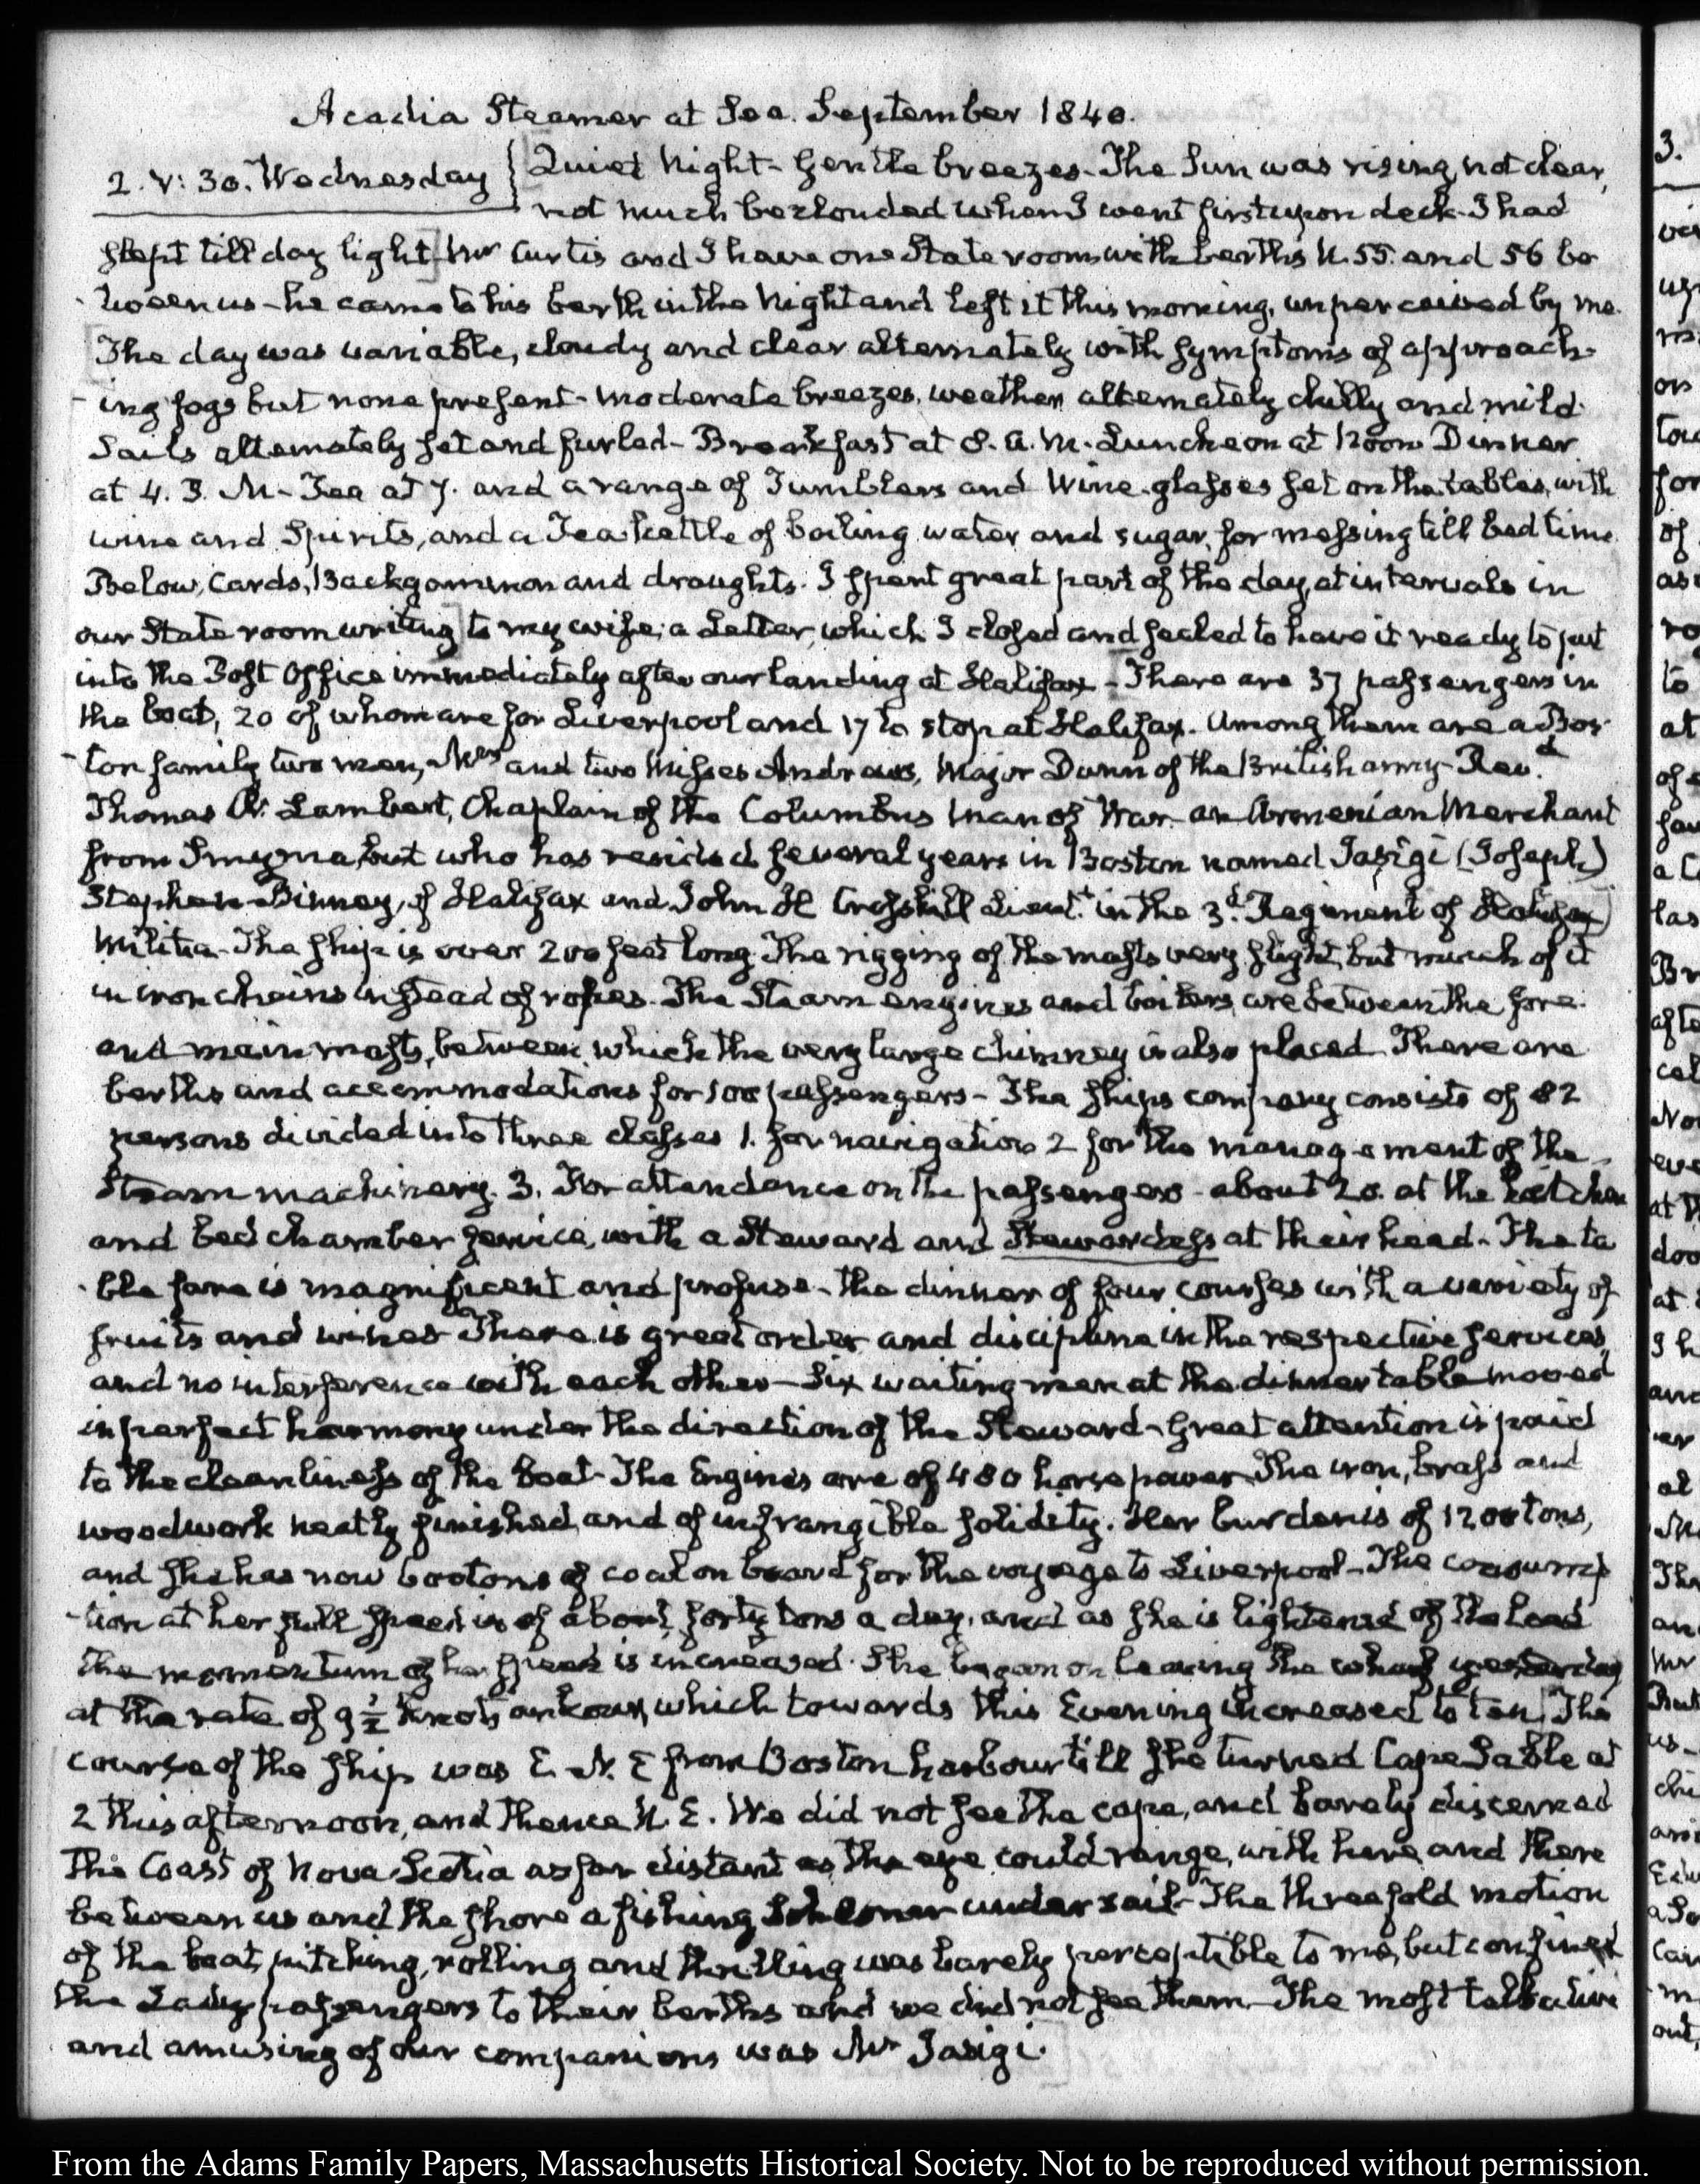 Acadia Steamer at Sea. September 1840.
2. V: 30. Wednesday
Quiet Night - Gentle breezes - The Sun was rising, not clear,
not much beclouded when I went first upon deck - I had
slept till day light - Mr Curtis and I have one State room with berths N. 55. and 56 be-
-tween us - he came to his berth in the Night and left it this morning, unperceived by me.
The day was variable, cloudy and clear alternately with symptoms of approach-
-ing fogs but none present - moderate breezes, weather alternately chilly and mild.
Sails alternately set and furled - Breakfast at 8. A.M. Luncheon at Noon Dinner
at 4. P. M - Tea at 7. and a range of Tumblers and Wine-glasses set on the tables, with
wine and Spirits, and a Tea kettle of boiling water and sugar, for messing till bed time
Below, Cards, Backgammon and draughts. I spent great part of the day, at intervals in
our State room writing to my wife, a Letter, which I closed and sealed to have it ready to put
into the Post Office immediately after our landing at Halifax - There are 37 passengers in
the boat, 20 of whom are for Liverpool and 17 to stop at Halifax. Among them are a Bos-
-ton family two men, Mrs and two Misses Andrews, Major Dunn of the British army - Revd.
Thomas R. Lambert, Chaplain of the Columbus Man of War - an Armenian Merchant
from Smyrna, but who has resided several years in Boston named Iasigi (Joseph)
Stephen Binney, of Halifax and John H Crosskill Lieut. in the 3d. Regiment of Halifax
Militia - The ship is over 200 feet long. The rigging of the masts very slight, but much of it
in iron chains instead of ropes. The Steam engines and boilers, are between the fore
and main masts, between which the very large chimney is also placed. There are
berths and accommodations for 100 passengers - The ships company consists of 82
persons divided into three classes 1. for navigation 2 for the management of the
Steam machinery. 3. For attendance on the passengers - about 20. at the kitchen
and bed chamber service, with a Steward and Stewardess at their head - The ta-
-ble fare is magnificent and profuse - the dinner of four courses with a variety of
fruits and wines There is great order and discipline in the respective services,
and no interference with each other - Six waiting men at the dinner table moved
in perfect harmony under the direction of the Steward - Great attention is paid
to the cleanliness of the boat - The Engines are of 480 horse power The iron, brass and
woodwork neatly finished, and of infrangible solidity. Her burden is of 1200 tons,
and she has now 600 tons of coal on board for the voyage to Liverpool - The consump-
-tion at her full speed is of about forty tons a day, and as she is lightened of the load
the momentum of her speed is increased. She began on leaving the wharf yesterday
at the rate of 9 1/2 knots an hour, which towards this Evening increased to ten The
course of the ship was E. N. E from Boston harbour till she turned Cape Sable at
2 this afternoon, and thence N. E. We did not see the cape, and barely discerned
the Coast of Nova Scotia as far distant as the eye could range, with here and there
between us and the shore a fishing Schooner under sail - The threefold motion
of the boat, pitching, rolling and thrilling was barely perceptible to me, but confined
the Lady passengers to their berths and we did not see them - The most talkative
and amusing of our companions was Mr Iasigi.
From the Adams Family Papers, Massachusetts Historical Society. Not to be reproduced without permission.